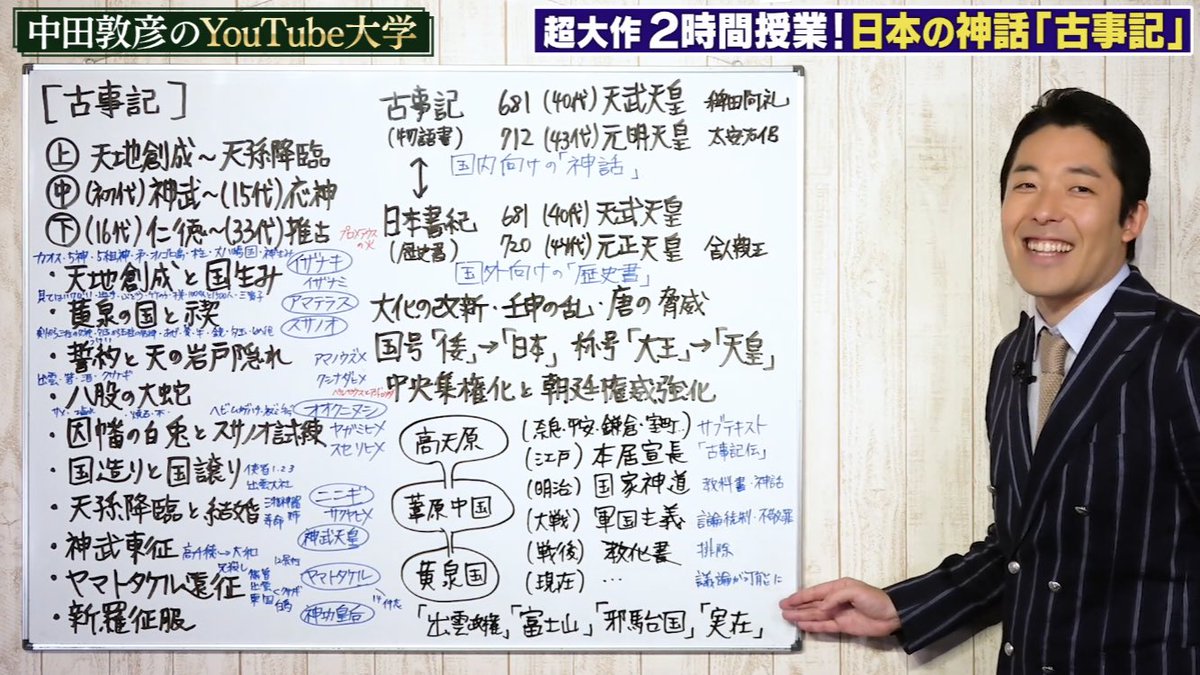 中田敦彦のYouTube大学
超大作2時間授業!日本の神話「古事記」
[古事記]
上 天地創成〜天孫降臨
中 (初代)神武〜(15代)応神
下 (16代)仁徳〜(33代)推古
プロメテウスの火
・天地創成と国生み
イザナキ
イザナミ
・黄泉の国と禊
アマテラス
スサノオ
・誓約と天の岩戸隠れ
アマノウズメ
クシナダヒメ
・八股の大蛇
オオクニヌシ
・因幡の白兎とスサノオ試練
ヤガミヒメ
スセリヒメ
・国造りと国譲り
使者1.2.3
出雲大社
・天孫降臨と結婚
三種神器
寿命
ニニギ
サクヤヒメ
・神武東征
高千穂→大和
神武天皇
・ヤマトタケル遠征
ヤマトタケル
・新羅征服
神功皇后
古事記 681 (40代)天武天皇 稗田阿礼
(物語書) 712 (43代)元明天皇 太安万侶
国内向けの「神話」
↕
日本書紀 681 (40代)天武天皇
(歴史書) 720 (44代)元正天皇 舎人親王
国外向けの「歴史書」
大化の改新・壬申の乱・唐の脅威
国号「倭」→「日本」 称号「大王」→「天皇」
中央集権化と朝廷権威強化
高天原
葦原中国
黄泉国
(奈良・平安・鎌倉・室町) サブテキスト
(江戸) 本居宣長 「古事記伝」
(明治) 国家神道 教科書・神話
(大戦) 軍国主義 言論統制・不敬罪
(戦後) 教化書 排除
(現在) … 議論が可能に
「出雲政権」「富士山」「邪馬台国」「実在」